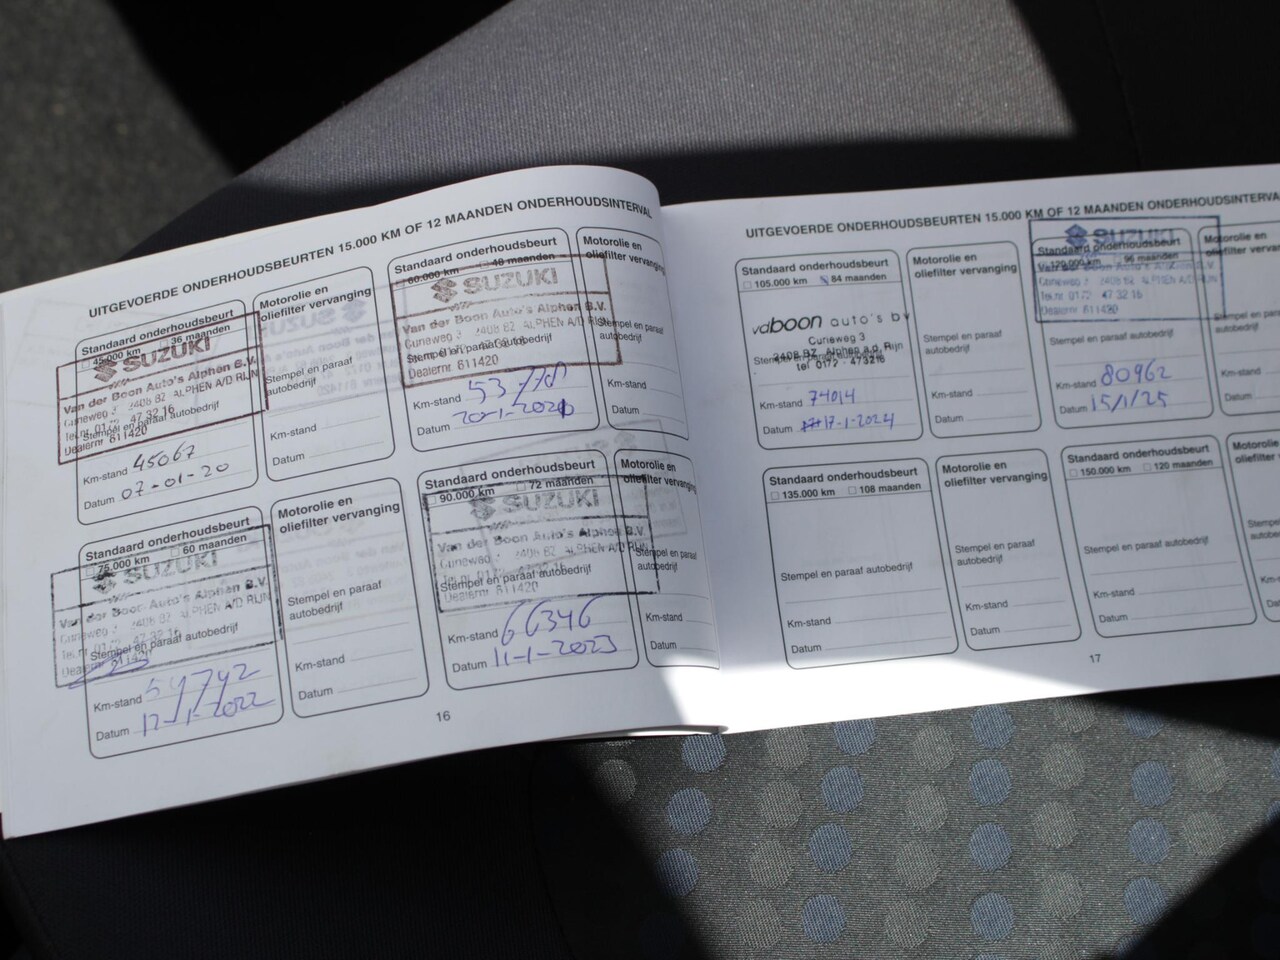 UITGEVOERDE ONDERHOUDSBEURTEN 15.000 KM OF 12 MAANDEN ONDERHOUDSINTERVAL
Standaard onderhoudsbeurt
45.000 km 36 maanden
SUZUKI
Van der Boon Auto's Alphen B.V.
Cuneweg 3 2408 BZ ALPHEN A/D RIJN
Tel.nr. 0172 47 32 16
Stempel en paraaf autobedrijf
Dealernr 611420
Km-stand 45067
Datum 07-01-20
Motorolie en
oliefilter vervanging
Stempel en paraaf
autobedrijf
Km-stand
Datum
Standaard onderhoudsbeurt
60.000 km 48 maanden
SUZUKI
Van der Boon Auto's Alphen B.V.
Cuneweg 3 2408 BZ ALPHEN A/D RIJN
Stempel en paraaf autobedrijf
Dealernr 611420
Km-stand
Datum
Motorolie en
oliefilter vervanging
Stempel en paraaf
autobedrijf
Km-stand
Datum
Standaard onderhoudsbeurt
75.000 km 60 maanden
SUZUKI
Van der Boon Auto's Alphen B.V.
Cuneweg 3 2408 BZ ALPHEN A/D RIJN
Tel.nr. 0172 47 32 16
Stempel en paraaf autobedrijf
Km-stand
Datum 12-1-2022
Motorolie en
oliefilter vervanging
Stempel en paraaf
autobedrijf
Km-stand
Datum
Standaard onderhoudsbeurt
90.000 km 72 maanden
SUZUKI
Van der Boon Auto's Alphen B.V.
Cuneweg 3 2408 BZ ALPHEN A/D RIJN
Stempel en paraaf autobedrijf
Dealernr 611420
Km-stand 66346
Datum 11-1-2023
Motorolie en
oliefilter vervanging
Stempel en paraaf
autobedrijf
Km-stand
Datum
16
UITGEVOERDE ONDERHOUDSBEURTEN 15.000 KM OF 12 MAANDEN ONDERHOUDSINTERVA
Standaard onderhoudsbeurt
105.000 km 84 maanden
vdboon auto's bv
Cuneweg 3
2408 BZ Alphen a.d. Rijn
tel 0172 - 473216
Km-stand 74014
Datum 17-1-2024
Motorolie en
oliefilter vervanging
Stempel en paraaf
autobedrijf
Km-stand
Datum
SUZUKI
Standaard onderhoudsbeurt
120.000 km 96 maanden
Tel.nr. 0172 47 32 16
Dealernr 611420
Stempel en paraaf autobedrijf
Km-stand 80962
Datum 15/1/25
Motorolie en
oliefilter
Stempel en
autobedrijf
Km-stand
Datum
Standaard onderhoudsbeurt
135.000 km 108 maanden
Stempel en paraaf autobedrijf
Km-stand
Datum
Motorolie en
oliefilter vervanging
Stempel en paraaf
autobedrijf
Km-stand
Datum
Standaard onderhoudsbeurt
150.000 km 120 maanden
Stempel en paraaf autobedrijf
Km-stand
Datum
Motorolie
oliefilter
Stempel en
autobedrijf
Km-stand
Datum
17